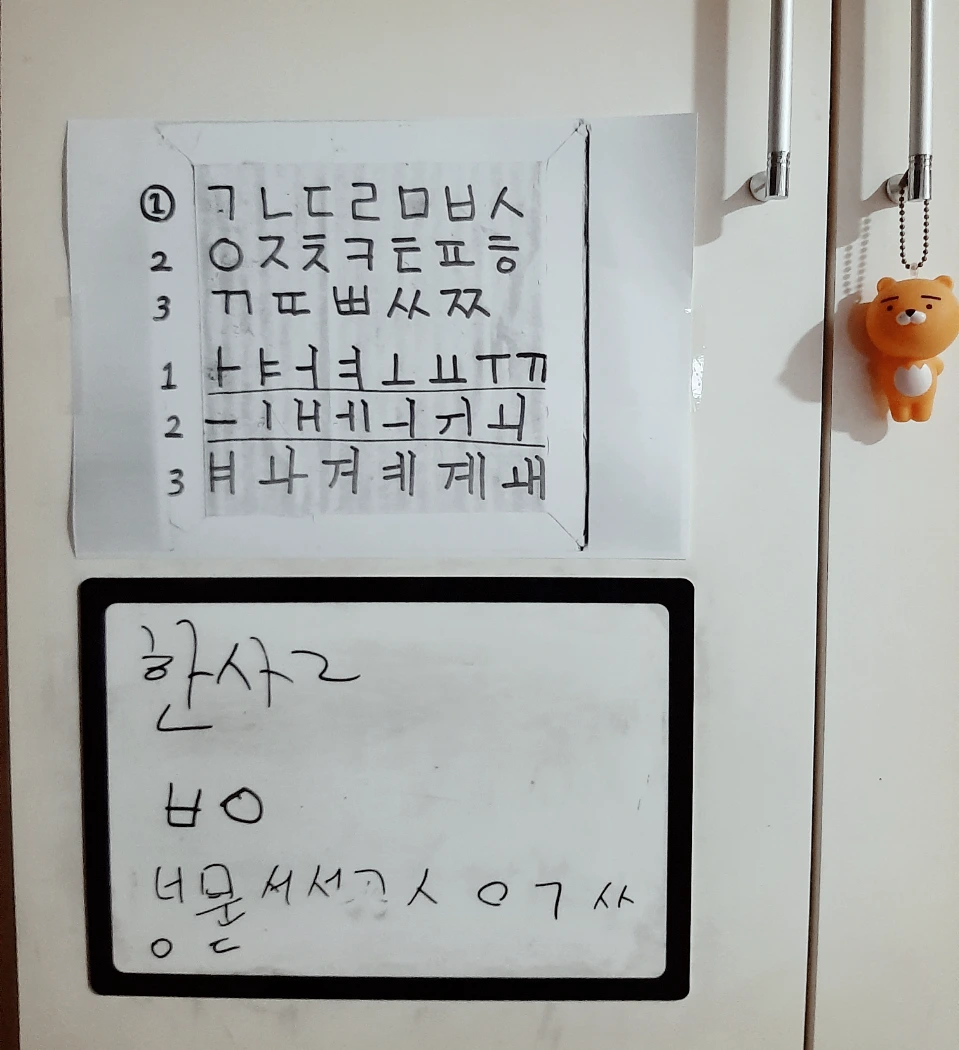 ① ㄱ ㄴ ㄷ ㄹ ㅁ ㅂ ㅅ
2 ㅇ ㅈ ㅊ ㅋ ㅌ ㅍ ㅎ
3 ㄲ ㄸ ㅃ ㅆ ㅉ
1 ㅏ ㅑ ㅓ ㅕ ㅗ ㅛ ㅜ ㅠ
2 ㅡ ㅣ ㅐ ㅔ ㅢ ㅟ ㅚ
3 ㅒ ㅘ ㅝ ㅖ ㅞ ㅙ
한사
ㅂㅇ
ㅅ ㅇ ㄱ ㅆ